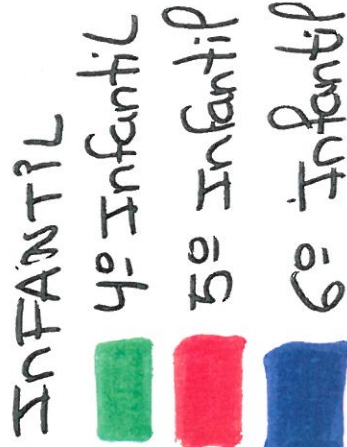 InFANTiL
4º Infantil
5º Infantil
6º Infantil